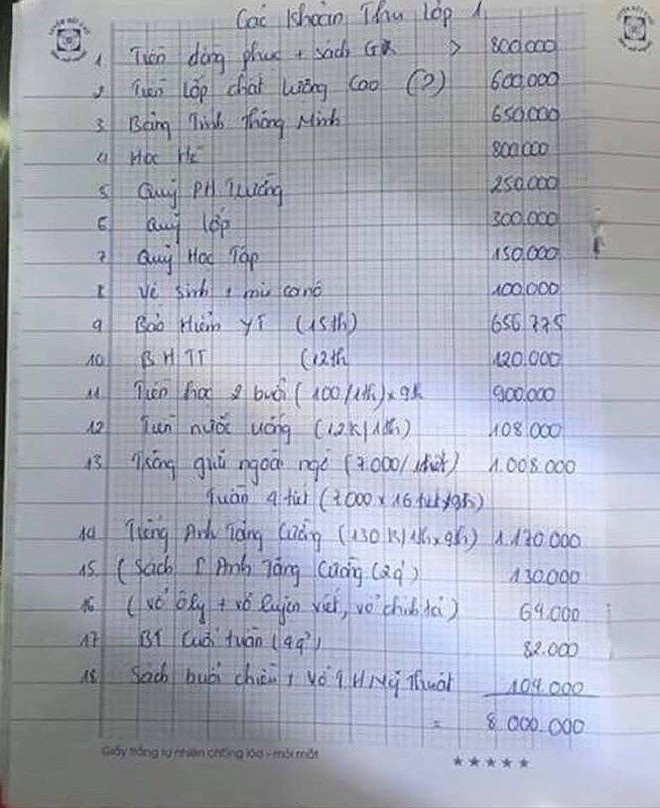 Các khoản Thu lớp 1.
1 Tiền đồng phục + sách GK > 800.000
2 Tiền lớp chất lượng cao (?) 600.000
3 Bảng Tính Thông Minh 650.000
4 Học Hè 800.000
5 Quỹ PH Trường 250.000
6 Quỹ lớp 300.000
7 Quỹ Học Tập 150.000
8 Vệ sinh + mũ ca nô 100.000
9 Bảo Hiểm YT (15th) 656.775
10 BHTT (12th 120.000
11 Tiền học 2 buổi (100/1th) x 9th 900.000
12 Tiền nước uống (12K/1th) 108.000
13 Trông giữ ngoài ngờ (7.000/1tiết) 1.008.000
Tuần 4 tiết (7.000 x 16 tiết/9th)
14 Tiếng Anh Tăng Cường (130K/1th x 9th) 1.170.000
15 (Sách T Anh Tăng Cường (2q) 130.000
16 (vở ôly + vở luyện viết, vở chính tả) 64.000
17 BT Cuối tuần (4q) 82.000
18 Sách buổi chiều, Vở Mỹ Thuật 104.000
= 8.000.000
Giấy trắng tự nhiên chống lóa - mỏi mắt